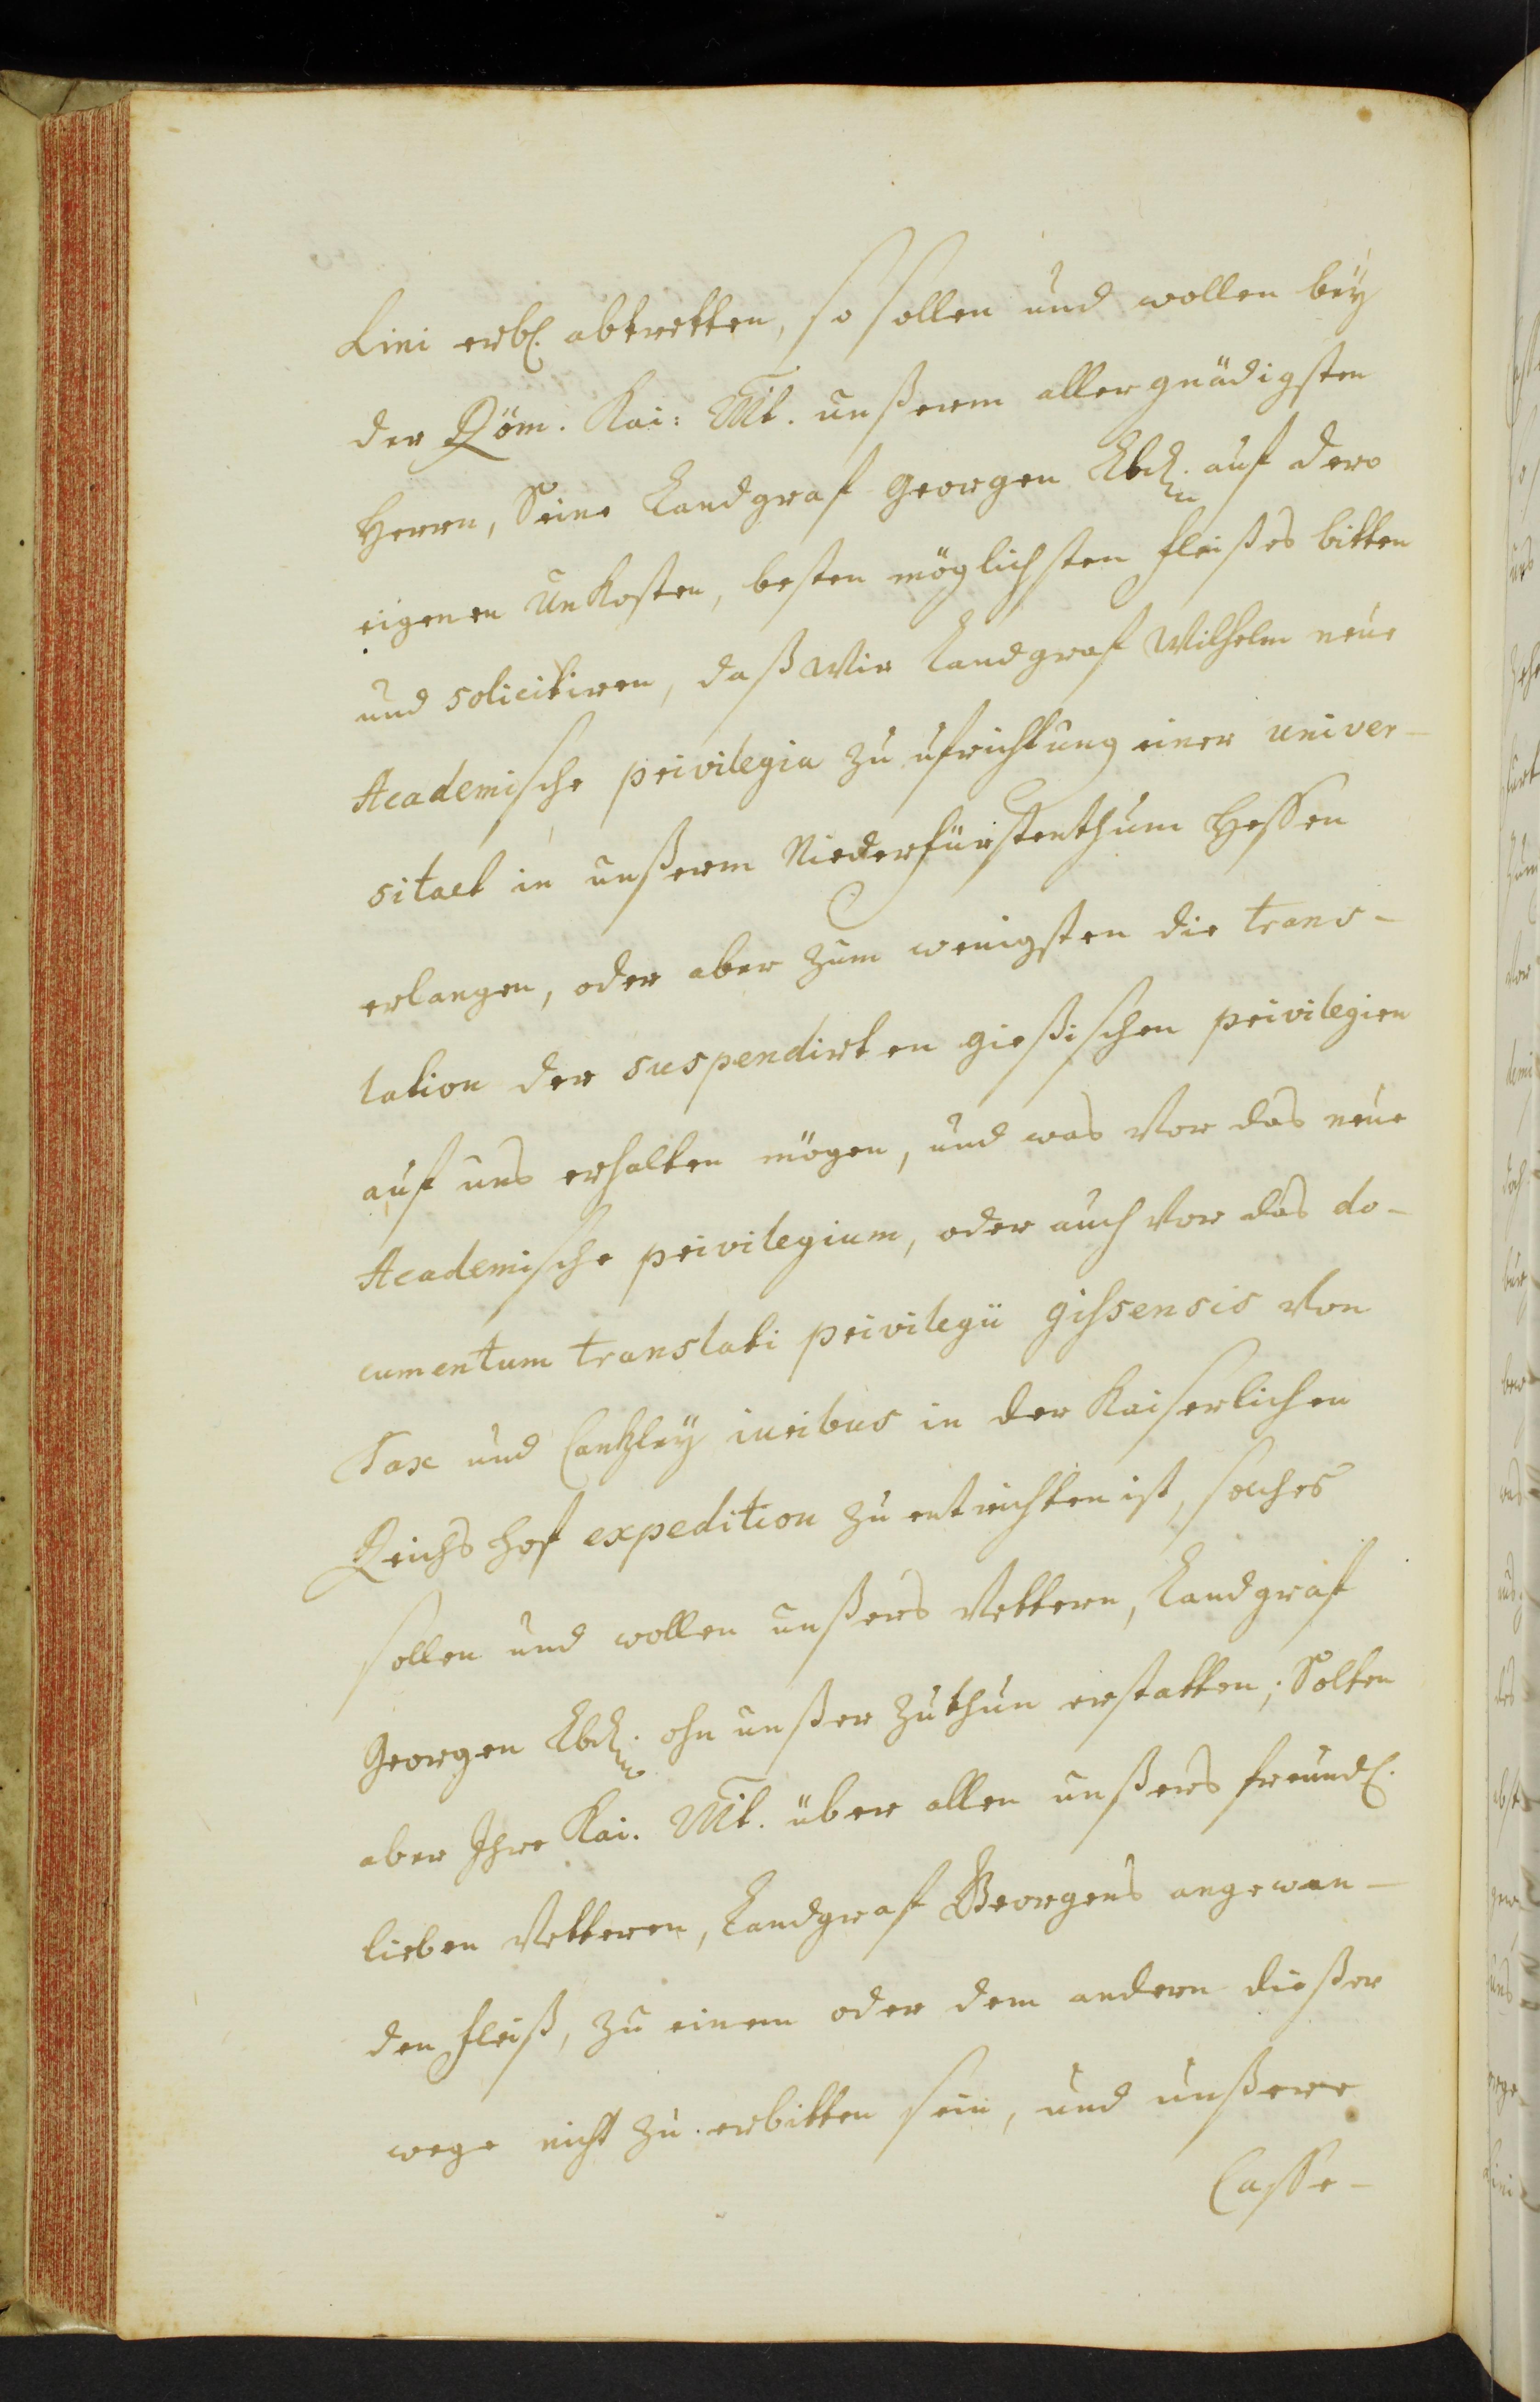 Lini erbl. abtretten, so sollen und wollen bey
der Röm. Kai: Mt. unßerm allergnädigsten
Herrn, Seine Landgraf Georgen Lbd. auf dero
eigenen Unkosten, besten möglichsten fleißes bitten
und solicitiren, daß Wir Landgraf Wilhelm neue
Academische privilegia zu ufrichtung einer univer-
sitaet in unßerm Niederfürstenthum Hessen
erlangen, oder aber zum wenigsten die trans-
lation der suspendirten gießischen privilegien
auf uns erhalten mögen, und was vor das neue
Academische privilegium, oder auch vor das do-
cumentum translati privilegii gissensis von
Tax und Cantzley iuribus in der Kaiserlichen
Reichs hof expedition zu entrichten ist, solches
sollen und wollen unßers Vettern, Landgraf
Georgen Lbd. ohn unßer zuthun erstatten; Solten
aber Ihre Kai. Mt. über allen unßers freundl.
lieben Vetteren, Landgraf Georgens angewan-
den fleiß, zu einem oder dem andern dießer
wege nicht zu erbitten sein, und unßere
Casse-